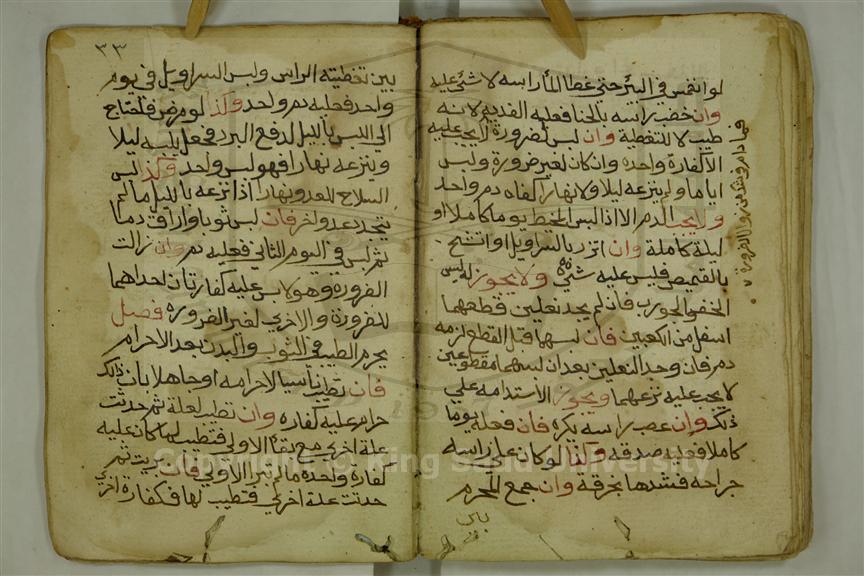 لو انغمس في البئر حتى غطا الماء راسه لا شئ عليه
وان خضب راسه بالحنا فعليه الفديه لانه
طيب لا للتغطية وان لبس لضرورة لا يجب عليه
الا كفارة واحده وان كان لغير ضرورة ولبس
اياما ولم ينزعه ليلا ولا نهارا كفاه دم واحد
ولا يجب الدم الا اذا لبس المخيط يوما كاملا او
ليلة كاملة وان اتزر بالسراويل او اتشح
بالقميص فليس عليه شئ ولا يجوز له لبس
الخفين الجورب فان لم يجد نعلين قطعهما
اسفل من الكعبين فان لبسهما قبل القطع لزمه
دم فان وجد النعلين بعد ان لبسهما مقطوعين
لا يجب عليه نزعهما ويجوز الاستدامه على
ذلك وان عصب راسه يكره فان فعله يوما
كاملا فعليه صدقه وكذا لو كان على راسه
جراحه فشدها بخرقة وان جمع المحرم
بين
٣٣
بين تغطيته الراس ولبس السراويل في يوم
واحد فعليه دم واحد وكذا لو مرض فاحتاج
الى اللبس بالليل لدفع البرد فجعل يلبسه ليلا
وينزعه نهارا فهو لبس واحد وكذا لبس
السلاح للعدو نهارا اذا نزعه بالليل ما لم
يتجدد عدو اخر فان لبس ثوبا واراق دما
ثم لبس في اليوم الثاني فعليه دم وان زالت
الضرورة وهو لابس عليه كفارتان احداهما
للضرورة والاخرى لغير الضرورة فصل
يحرم الطيب في الثوب والبدن بعد الاحرام
فان تطيب ناسيا لاحرامه او جاهلا بان ذلك
حرام عليه كفاره وان تطيب لعلة ثم حدثت
علة اخرى مع بقاء الاولى فتطيب لها كان عليه
كفارة واحده ما لم تبرا الاولى فان بريت ثم
حدثت علة اخرى فتطيب لها فكفارة اخرى
Copyright © King Saud University